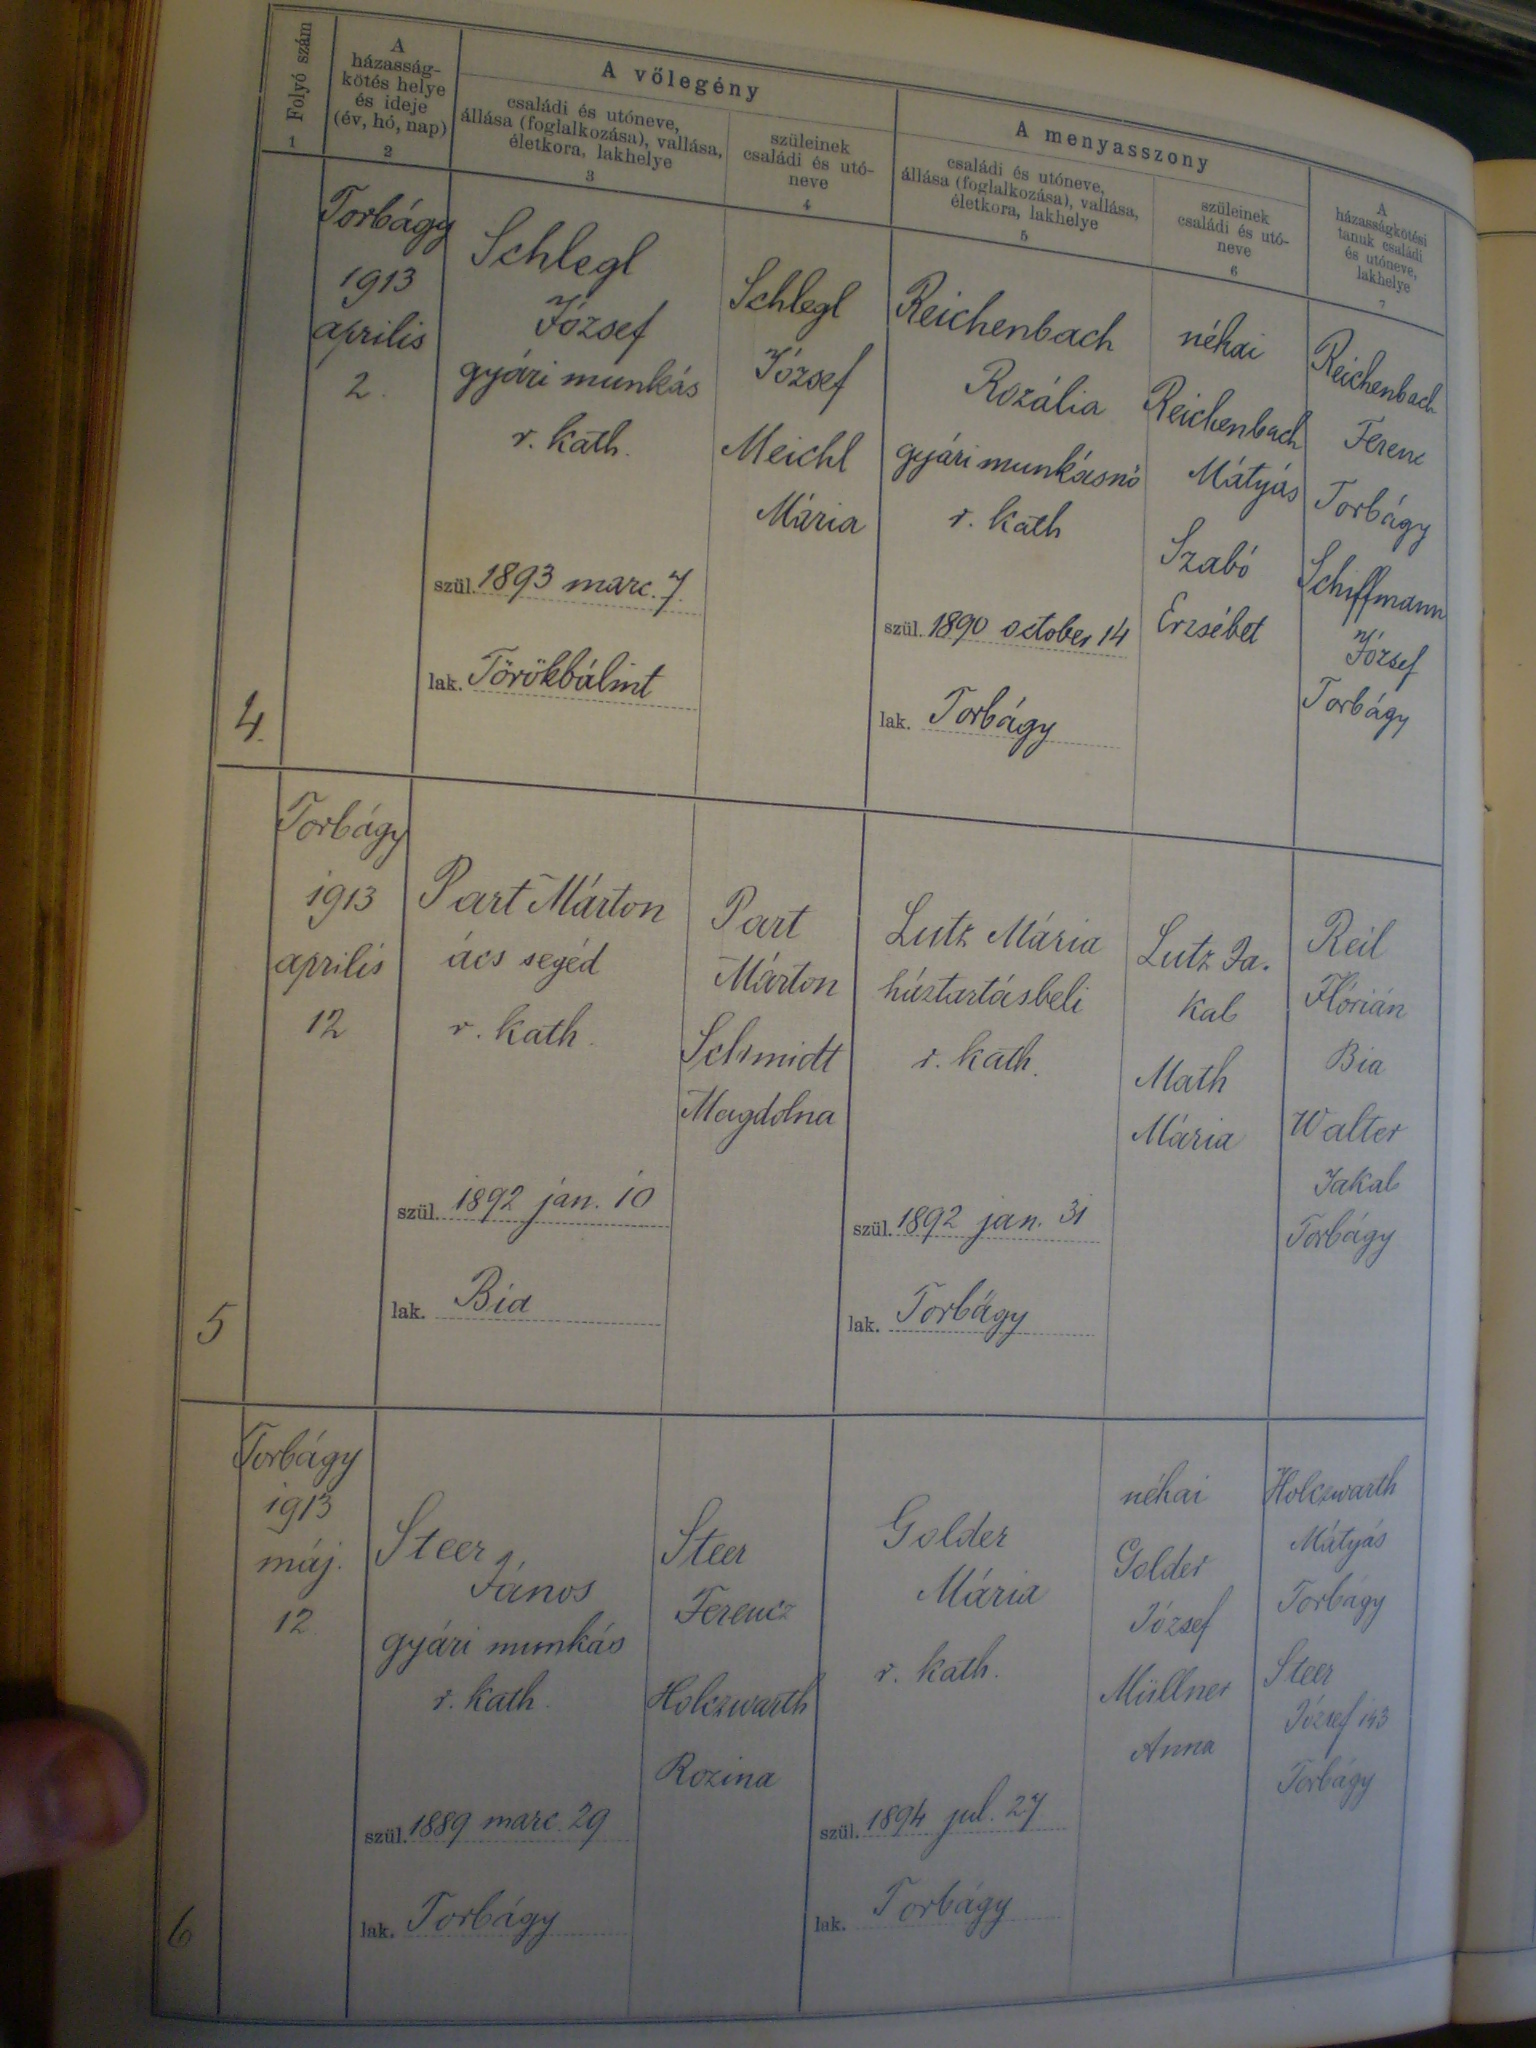 Folyó szám
1
A
házasság-
kötés helye
és ideje
(év, hó, nap)
2
A vőlegény
családi és utóneve,
állása (foglalkozása), vallása,
életkora, lakhelye
3
szüleinek
családi és utó-
neve
4
A menyasszony
családi és utóneve,
állása (foglalkozása), vallása,
életkora, lakhelye
5
szüleinek
családi és utó-
neve
6
A
házasságkötési
tanuk családi
és utóneve,
lakhelye
7
4.
Torbágy
1913
április
2.
Schlegl
József
gyári munkás
r. kath.
szül. 1893 marc. 7.
lak. Törökbálint
Schlegl
József
Meichl
Mária
Reichenbach
Rozália
gyári munkásnő
r. kath
szül. 1890 october 14
lak. Torbágy
néhai
Reichenbach
Mátyás
Szabó
Erzsébet
Reichenbach
Ferenc
Torbágy
Schiffmann
József
Torbágy
5
Torbágy
1913
április
12
Part Márton
ács segéd
r. kath.
szül. 1892 jan. 10
lak. Bia
Part
Márton
Schmidt
Magdolna
Lutz Mária
háztartásbeli
r. kath.
szül. 1892 jan. 31
lak. Torbágy
Lutz Ja.
kab
Math
Mária
Reil
Flórián
Bia
Walter
Jakab
Torbágy
6
Torbágy
1913
máj.
12.
Steer
János
gyári munkás
r. kath.
szül. 1889 marc. 29
lak. Torbágy
Steer
Ferencz
Holczwarth
Rozina
Golder
Mária
r. kath.
szül. 1894 jul. 27
lak. Torbágy
néhai
Golder
József
Müllner
Anna
Holczwarth
Mátyás
Torbágy
Steer
József 143
Torbágy